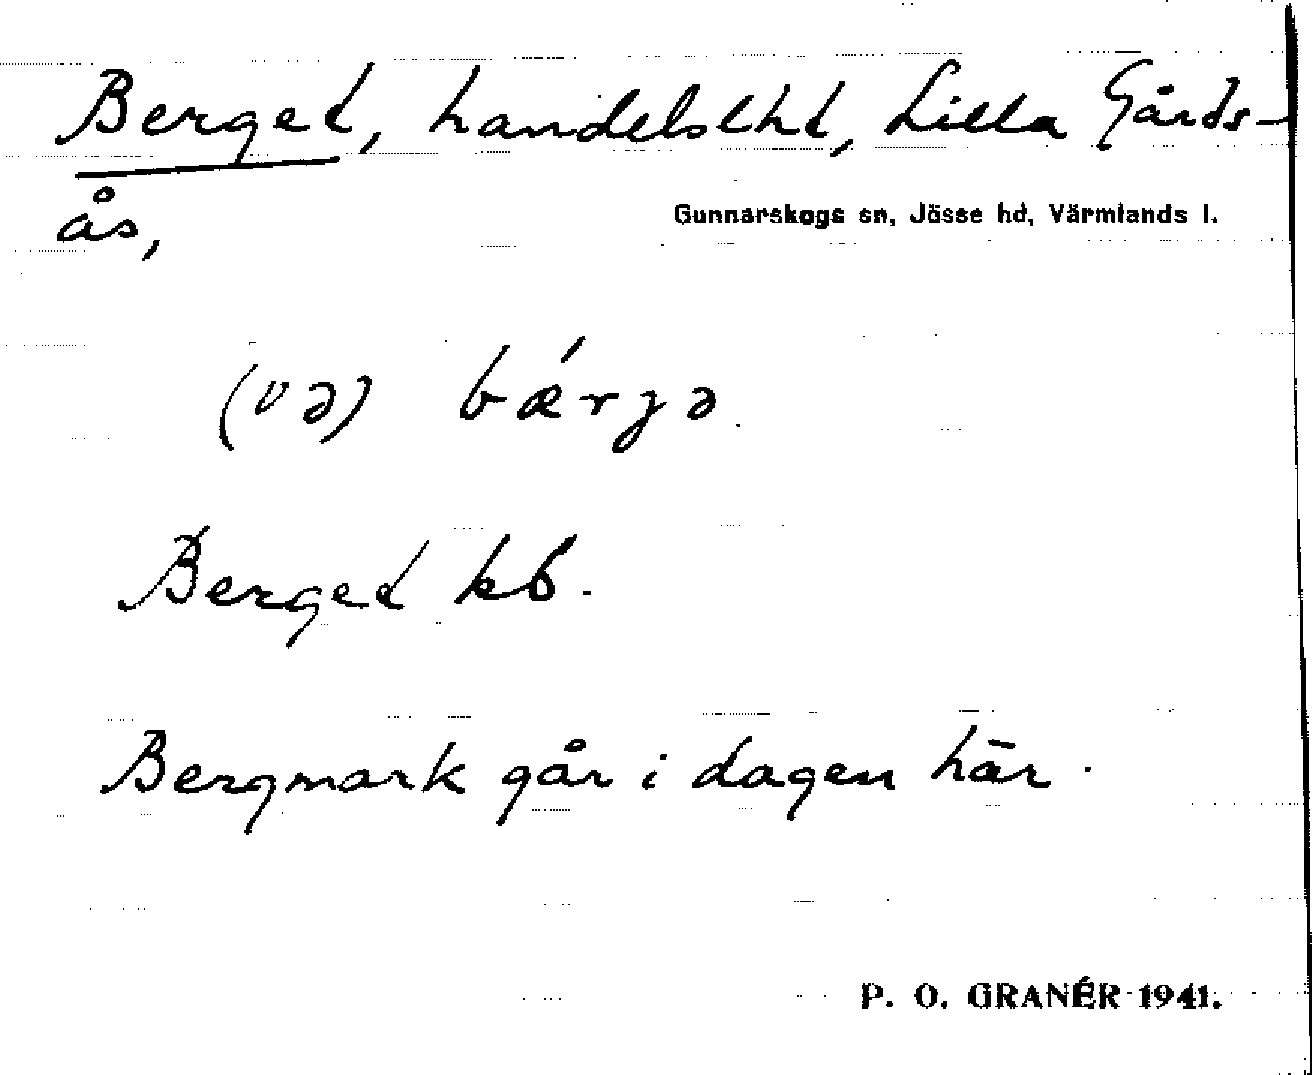 Berget, handelslht, Lilla Gårds-
ås,
Gunnarskogs sn, Jösse hd, Värmlands l.
(va) bǽrjə
Berget kb.
Bergmark går i dagen här.
P. O. GRANÉR 1941.